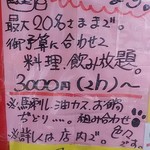 最大20名さままで。
御予算に合わせて
料理・飲み放題。
3000円(2h)〜
※馬刺し油カス、お肉
組み合わせ
※詳しくは店内で。